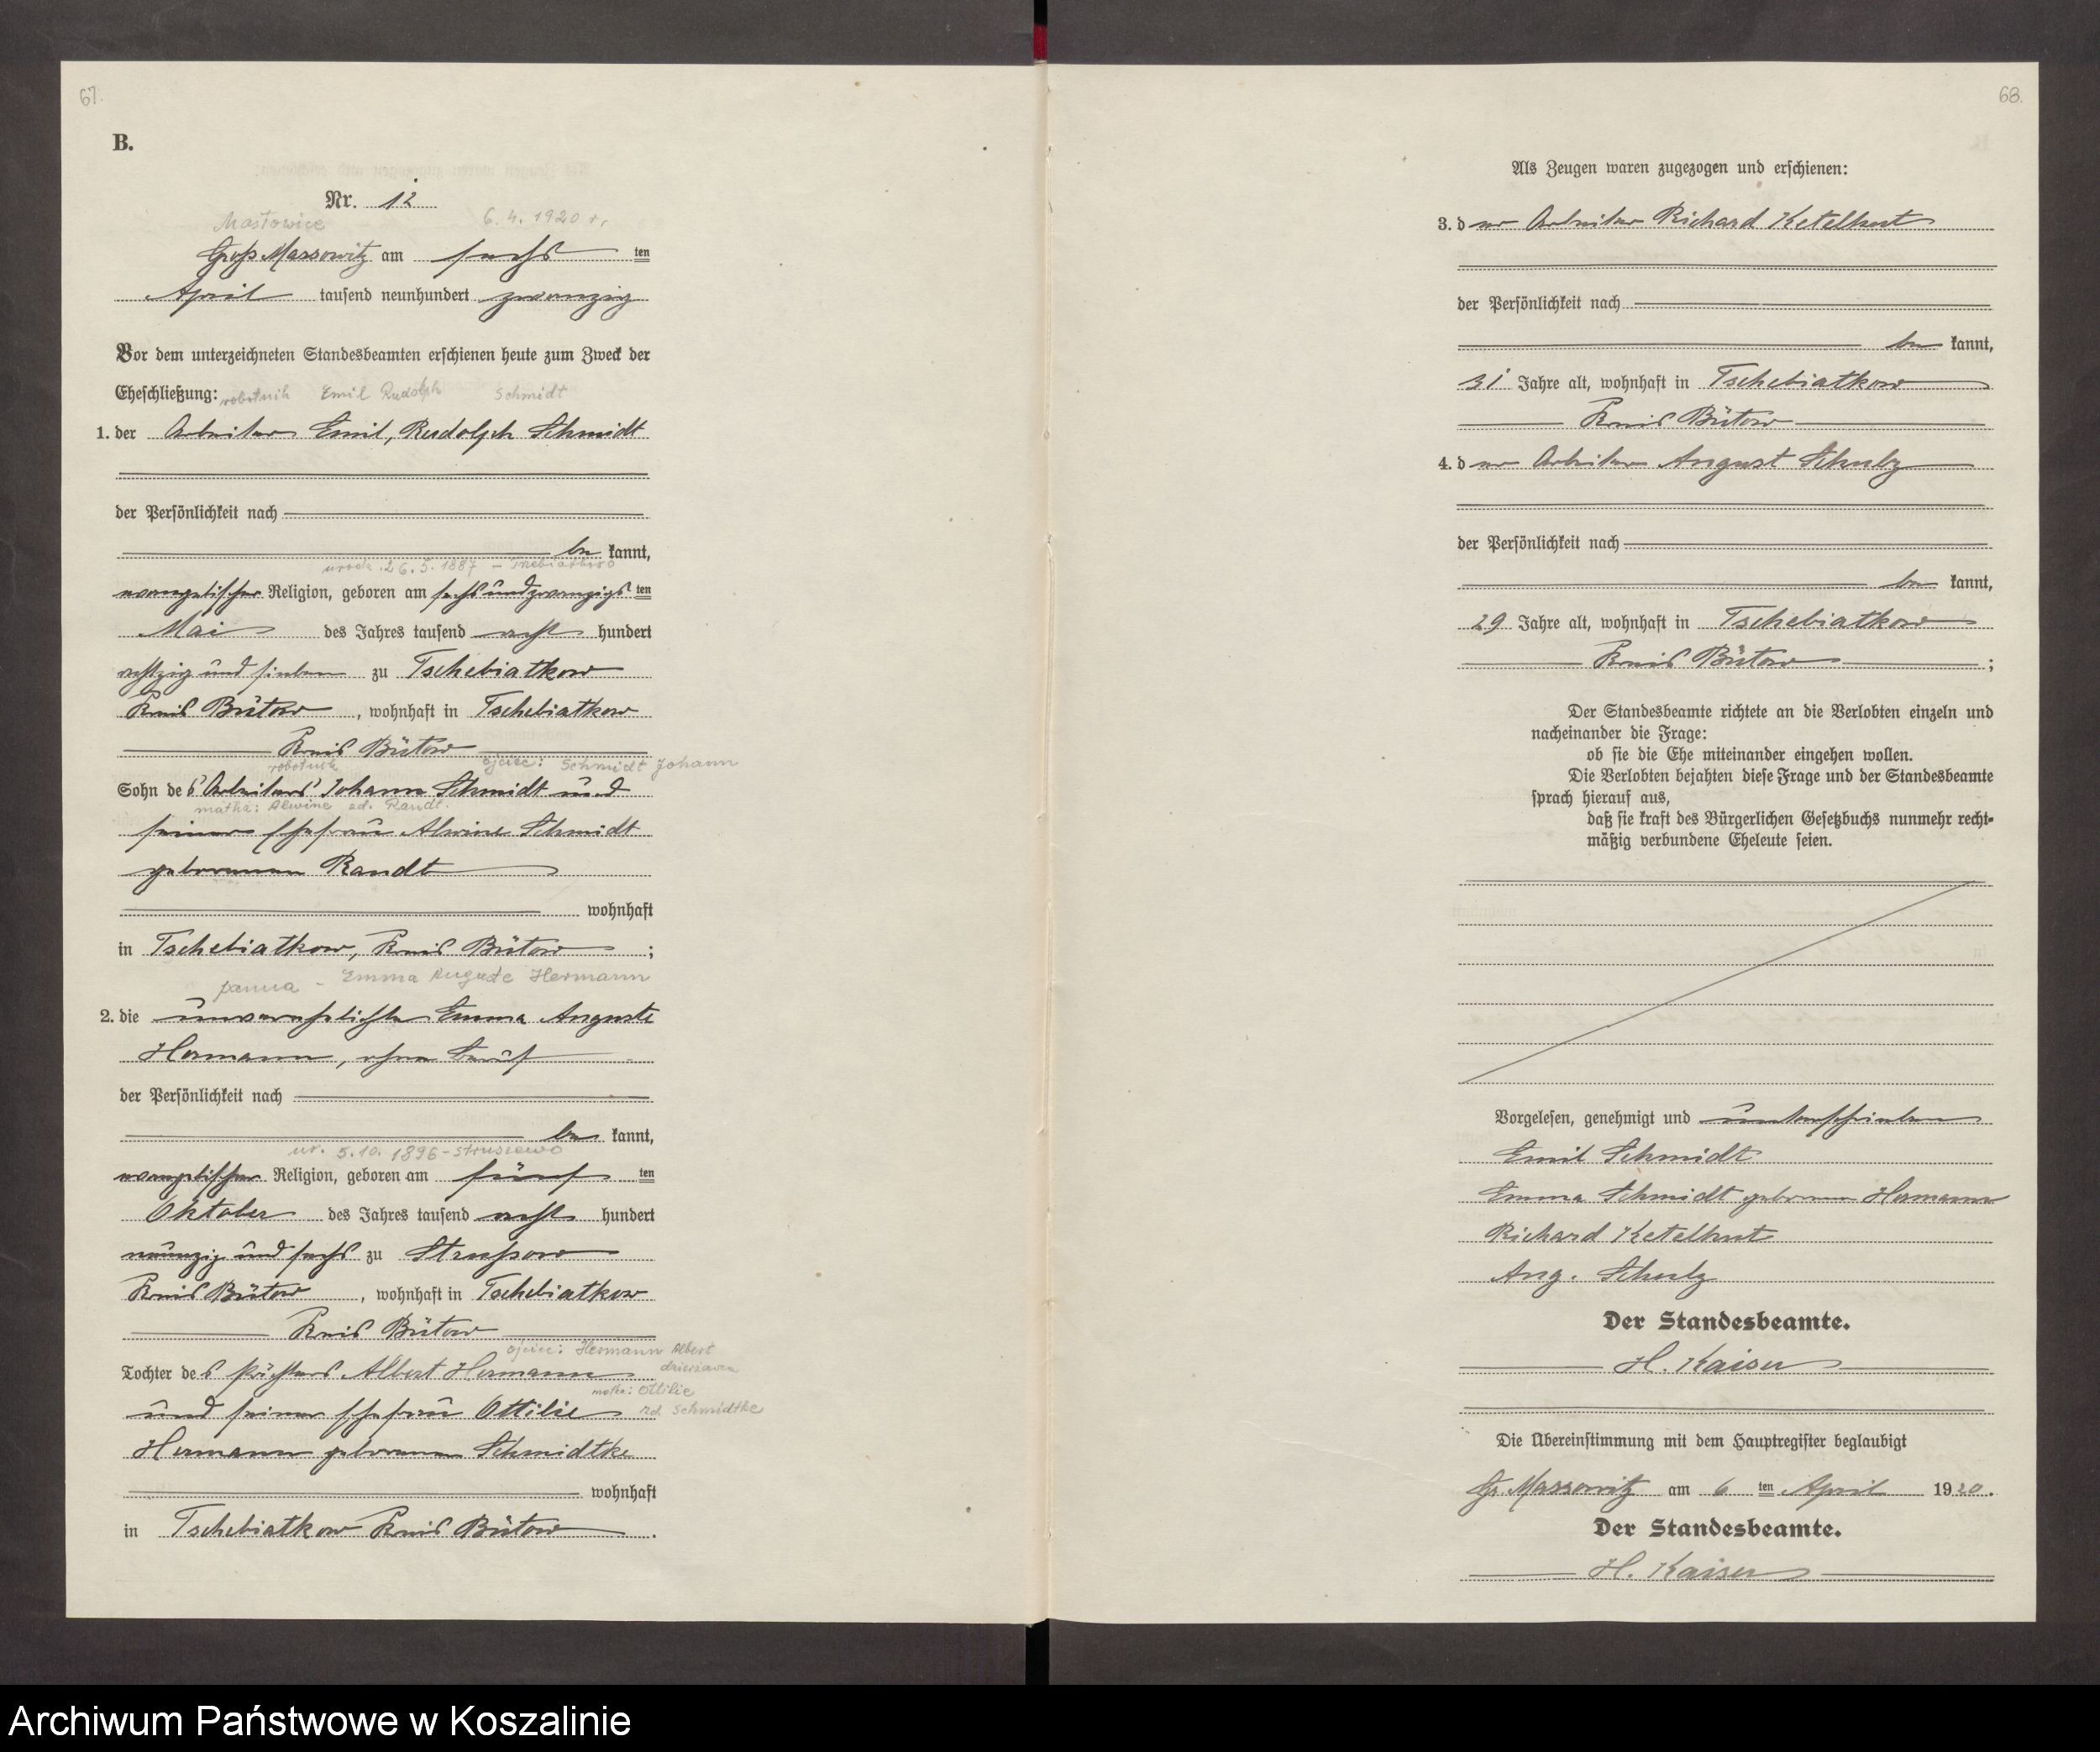 67.
B.
Nr. 12
Masłowice 6.4.1920 r.
Groß Massowitz am sechs ten
April tausend neunhundert zwanzig
Vor dem unterzeichneten Standesbeamten erschienen heute zum Zweck der
Eheschließung:
robotnik Emil Rudolph Schmidt
1. der Arbeiter Emil, Rudolph Schmidt
der Persönlichkeit nach
be kannt,
urodz. 26.5.1887 - Trzebiatkowo
evangelischer Religion, geboren am sechsundzwanzigs ten
Mai des Jahres tausend acht hundert
achtzig und sieben zu Tschebiatkow
Kreis Bütow, wohnhaft in Tschebiatkow
Kreis Bütow
robotnik ojciec: Schmidt Johann
Sohn des Arbeiters Johann Schmidt und
matka: Alwine zd. Randt.
seiner Ehefrau Alwine Schmidt
geborenen Randt
wohnhaft
in Tschebiatkow, Kreis Bütow ;
panna - Emma Auguste Hermann
2. die unverehelichte Emma Auguste
Hermann, ohne Beruf
der Persönlichkeit nach
be kannt,
ur. 5.10.1896 - Struszewo
evangelischer Religion, geboren am fünf ten
Oktober des Jahres tausend acht hundert
neunzig und sechs zu Strussow
Kreis Bütow, wohnhaft in Tschebiatkow
Kreis Bütow
ojciec: Hermann Albert
dzierżawca
Tochter des Pächters Albert Hermann
matka: Ottilie
und seiner Ehefrau Ottilie
zd. Schmidtke
Hermann geborenen Schmidtke
wohnhaft
in Tschebiatkow Kreis Bütow .
68.
Als Zeugen waren zugezogen und erschienen:
3. der Arbeiter Richard Ketelhut
der Persönlichkeit nach
be kannt,
31 Jahre alt, wohnhaft in Tschebiatkow
Kreis Bütow
4. der Arbeiter August Schulz
der Persönlichkeit nach
be kannt,
29 Jahre alt, wohnhaft in Tschebiatkow
Kreis Bütow ;
Der Standesbeamte richtete an die Verlobten einzeln und
nacheinander die Frage:
ob sie die Ehe miteinander eingehen wollen.
Die Verlobten bejahten diese Frage und der Standesbeamte
sprach hierauf aus,
daß sie kraft des Bürgerlichen Gesetzbuchs nunmehr recht-
mäßig verbundene Eheleute seien.
Vorgelesen, genehmigt und unterschrieben
Emil Schmidt
Emma Schmidt geborene Hermann
Richard Ketelhut
Aug. Schulz
Der Standesbeamte.
H. Kaiser
Die Übereinstimmung mit dem Hauptregister beglaubigt
Gr. Massowitz am 6 ten April 1920.
Der Standesbeamte.
H. Kaiser
Archiwum Państwowe w Koszalinie